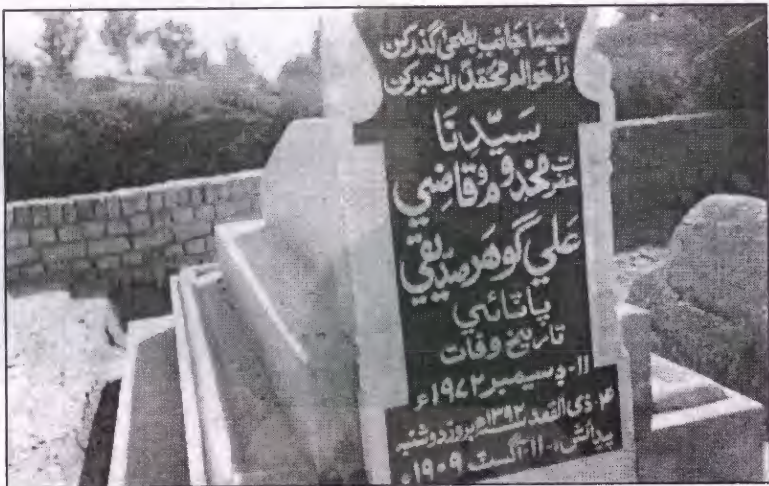 نسيما جانب بطحیٰ گذر کن
ز احوالم محمدؐ را خبر کن
سَيّدِنَا
حضرت مخدوم و قاضِي
عَلي گوهَر صديقي
پاٽائي
تاريخ وفات
۱۱-ڊسيمبر ۱۹۷۲ع
۴-ذي القعد سنه ۱۳۹۲ھ بروز دوشنبه
پيدائش، ۱۱-آگسٽ ۱۹۰۹ع